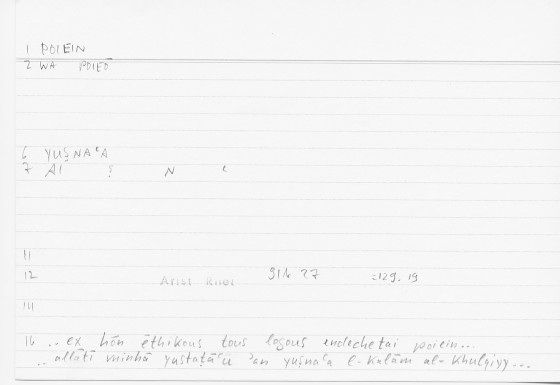 1 POIEIN
2 WA POIEŌ
6 YUṢNAʿA
7 AI Ṣ N ʿ
11
12 Arist Rhet 91b 27 =129. 19
14
16 .. ex hōn ēthikous tous logous endechetai poiein...
.. allātī minhā yastaṭāʿu ʾan yuṣnaʿa l-kalām al-khulqiyy ...